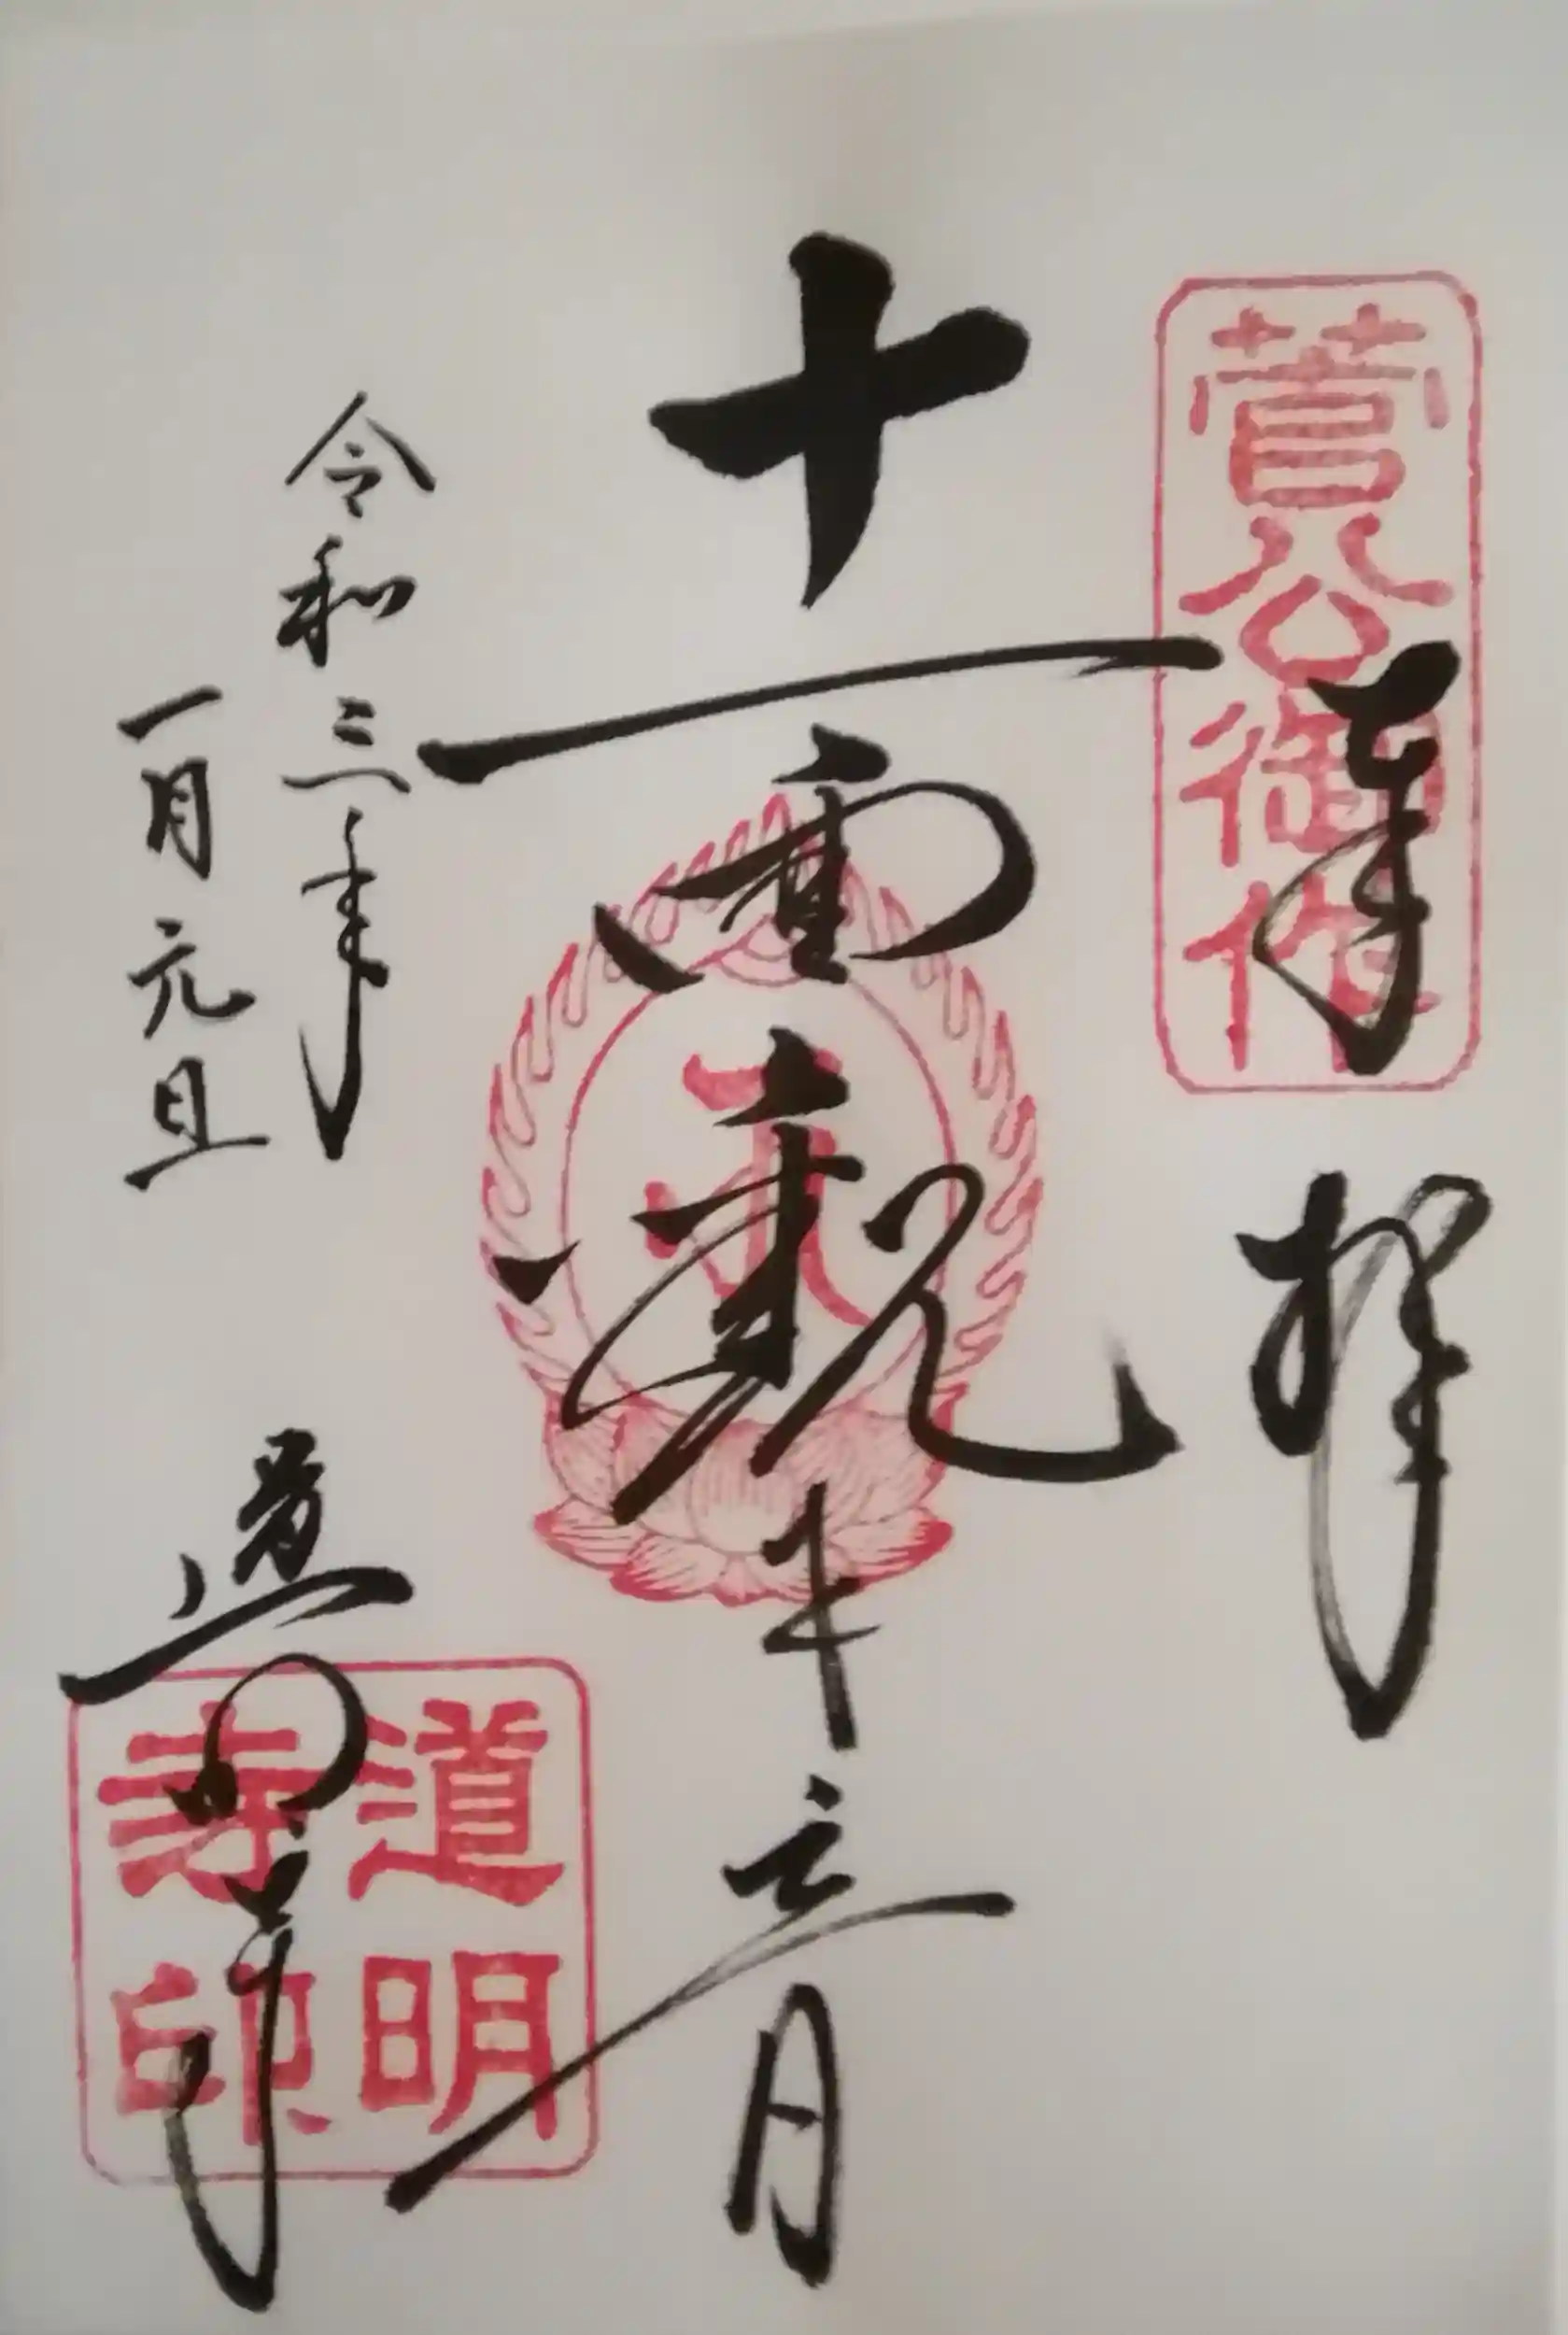 菅公御作
奉拝
十一面観世音
令和三年
一月元旦
道明寺
道明
寺印